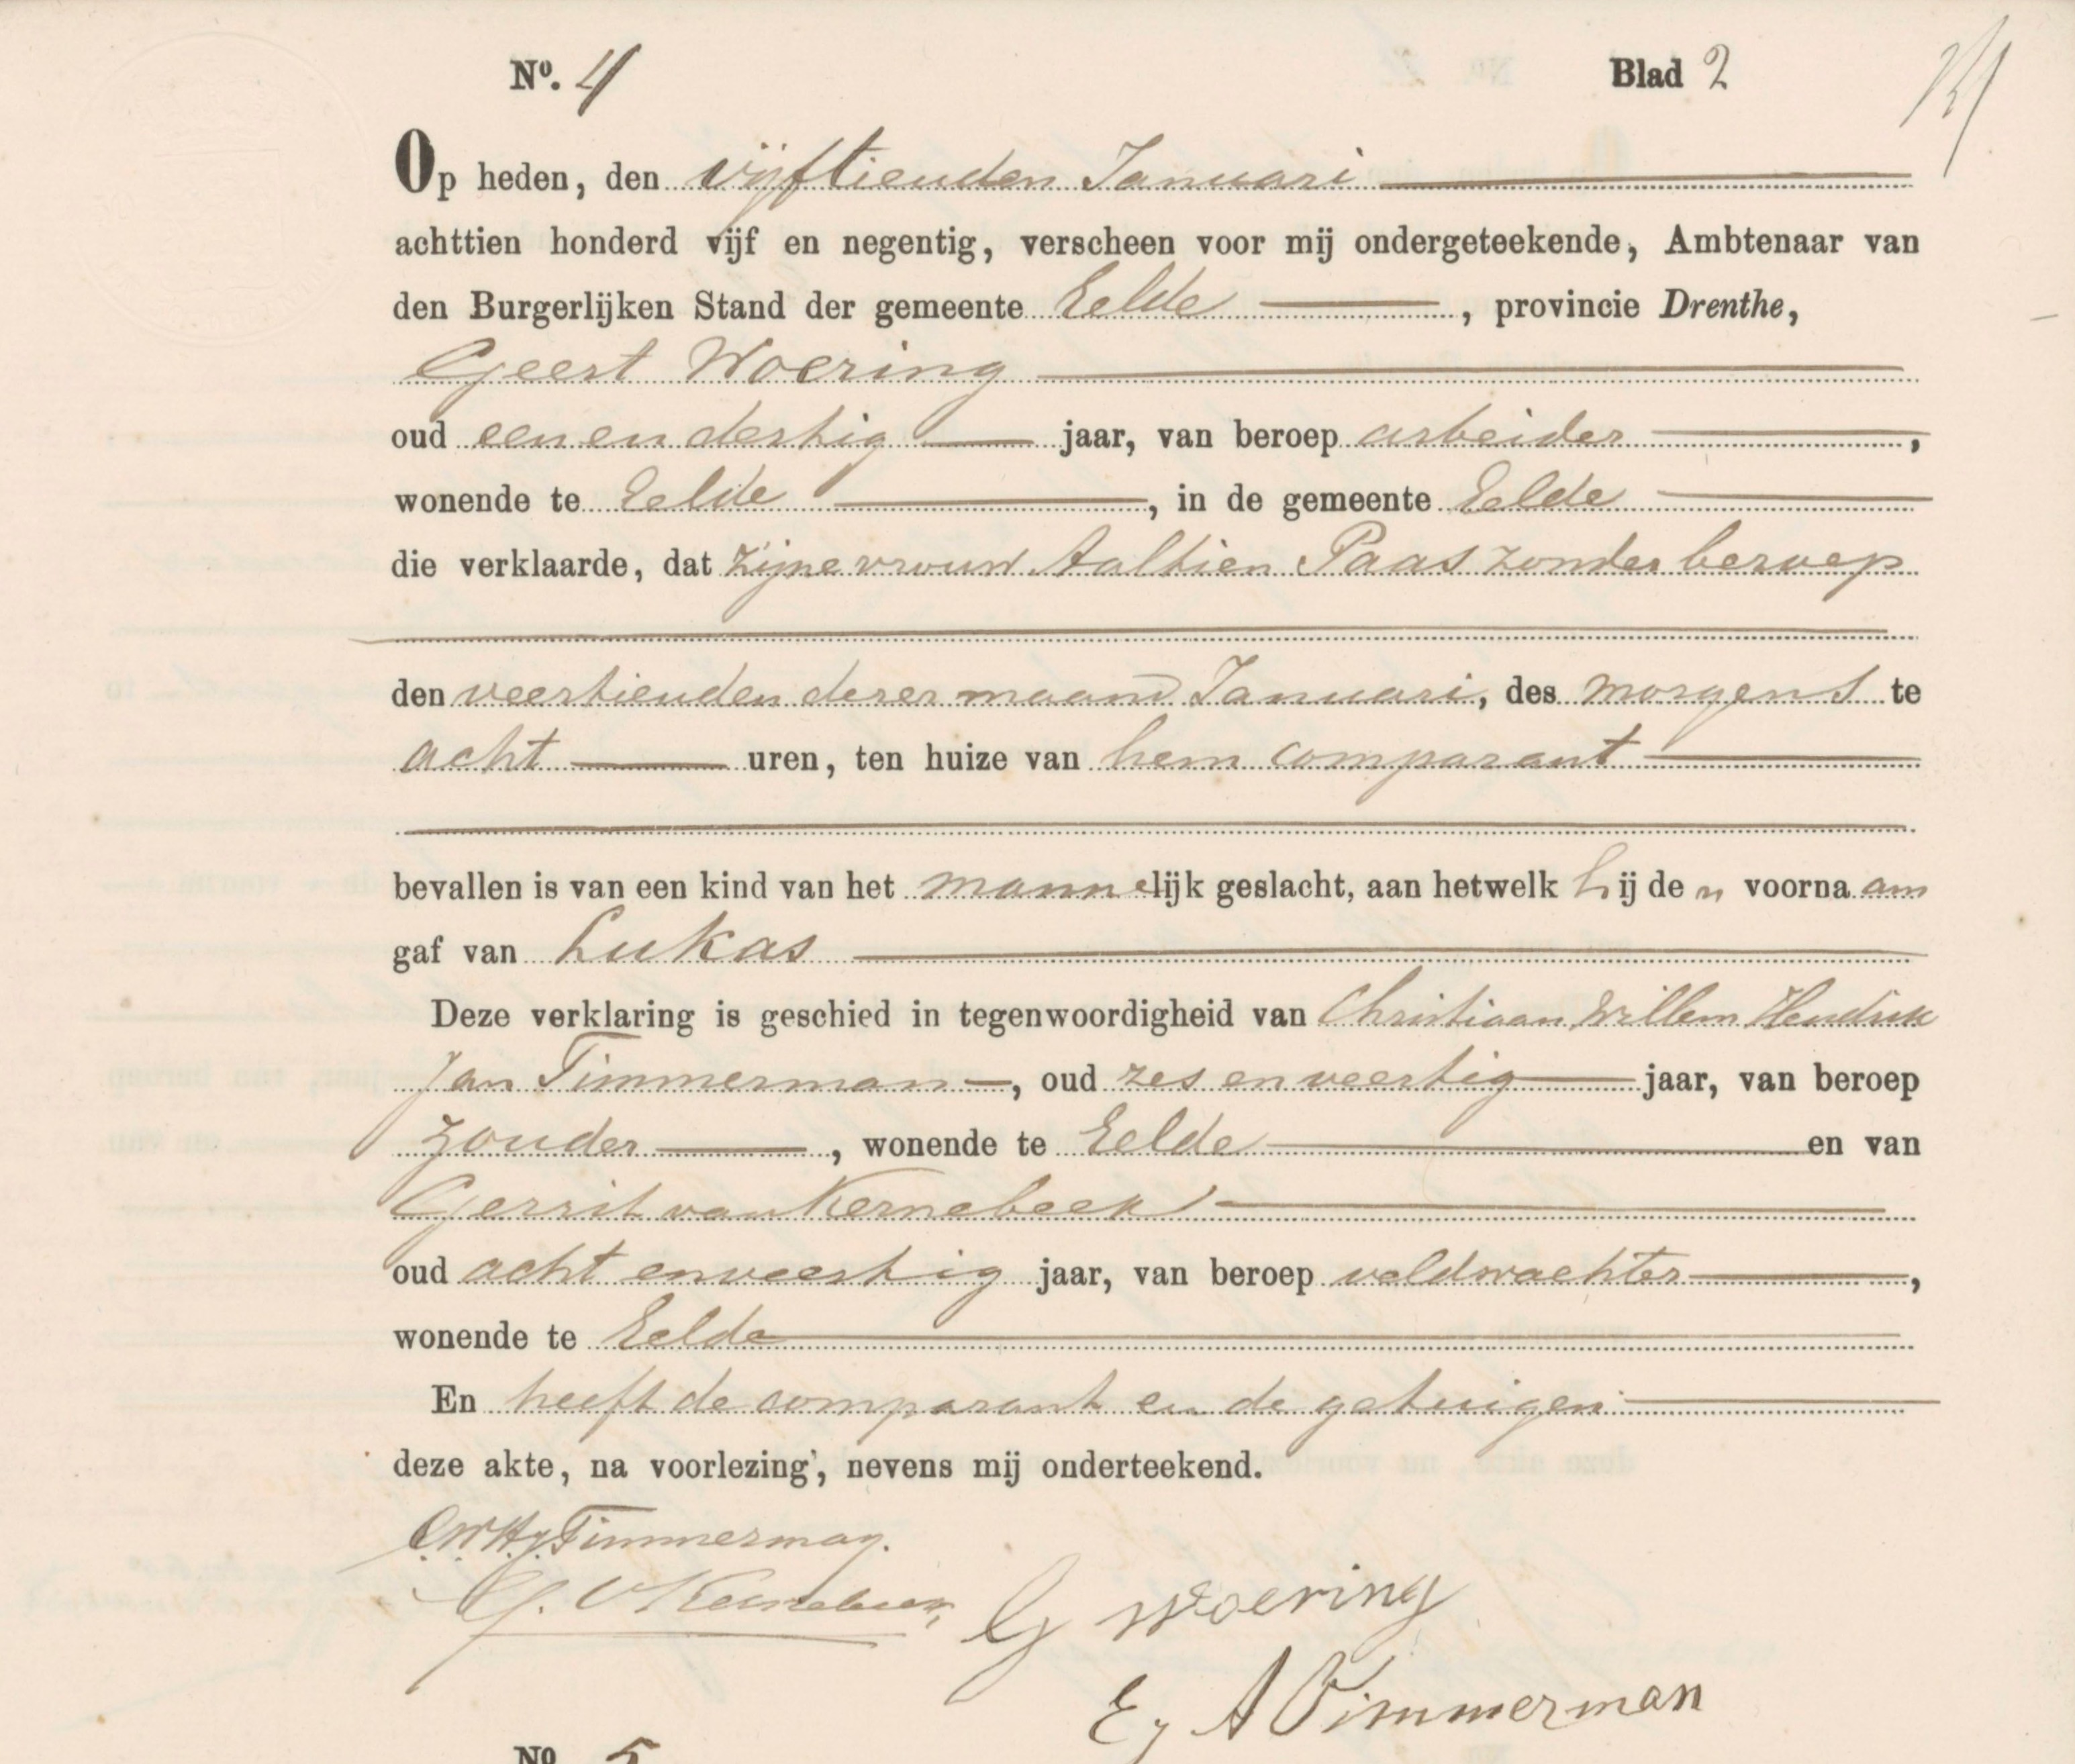 No. 4 Blad 2
Op heden, den vijftienden Januari
achttien honderd vijf en negentig, verscheen voor mij ondergeteekende, Ambtenaar van
den Burgerlijken Stand der gemeente Eelde, provincie Drenthe,
Geert Woering
oud een en dertig jaar, van beroep arbeider,
wonende te Eelde, in de gemeente Eelde
die verklaarde, dat zijne vrouw Aaltien Paas zonder beroep
den veertienden dezer maand Januari, des morgens te
acht uren, ten huize van hem comparant
bevallen is van een kind van het mannelijk geslacht, aan hetwelk hij den voornaam
gaf van Lukas
Deze verklaring is geschied in tegenwoordigheid van Christiaan Willem Hendrik
Jan Timmerman, oud zes en veertig jaar, van beroep
zonder, wonende te Eelde en van
Gerrit van Kernebeek
oud acht en veertig jaar, van beroep veldwachter,
wonende te Eelde
En heeft de comparant en de getuigen
deze akte, na voorlezing, nevens mij onderteekend.
C.W.H.J. Timmerman.
G. v Kernebeek
G Woering
Timmerman
No 5